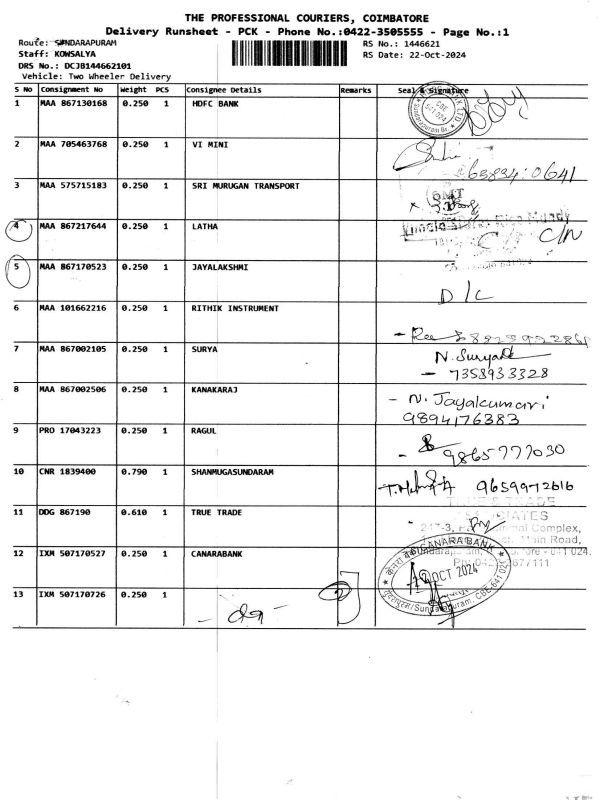 THE PROFESSIONAL COURIERS, COIMBATORE
Delivery Runsheet - PCK - Phone No.:0422-3505555 - Page No.:1
Route: SUNDARAPURAM
RS No.: 1446621
Staff: KOWSALYA
RS Date: 22-Oct-2024
DRS No.: DCJB144662101
Vehicle: Two Wheeler Delivery
S No Consignment No Weight PCS Consignee Details Remarks Seal & Signature
1 MAA 867130168 0.250 1 HDFC BANK
2 MAA 705463768 0.250 1 VI MINI
3 MAA 575715183 0.250 1 SRI MURUGAN TRANSPORT
4 MAA 867217644 0.250 1 LATHA C/N
5 MAA 867170523 0.250 1 JAYALAKSHMI
D/C
6 MAA 101662216 0.250 1 RITHIK INSTRUMENT
7 MAA 867002105 0.250 1 SURYA N. Surya
- 7358933328
8 MAA 867002506 0.250 1 KANAKARAJ - N. Jayakumari
9894176383
9 PRO 17043223 0.250 1 RAGUL
- 9865777030
10 CNR 1839400 0.790 1 SHANMUGASUNDARAM
9659972616
11 DDG 867190 0.610 1 TRUE TRADE
Complex,
Main Road,
12 IXM 507170527 0.250 1 CANARABANK CANARA BANK
641 024.
OCT 2024
13 IXM 507170726 0.250 1